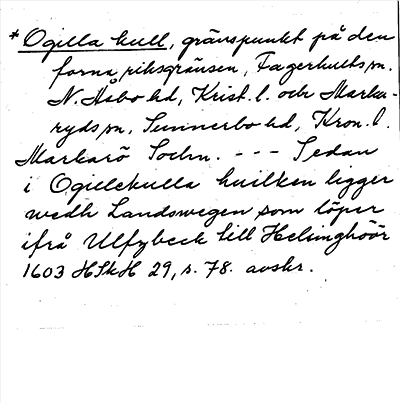 * Ogilla kull, gränspunkt på den
forna riksgränsen, Fagerhults sn.
N. Åsbo hd, Krist. l. och Marka-
ryds sn, Sunnerbo hd, Kron. l.
Markarö Sochn. - - - Sedan
i Ogillekulla huilken ligger
wedh Landswegen som löper
ifrå Ulfzbeck till Helsinghöör
1603 HSkH 29, s. 78. avskr.